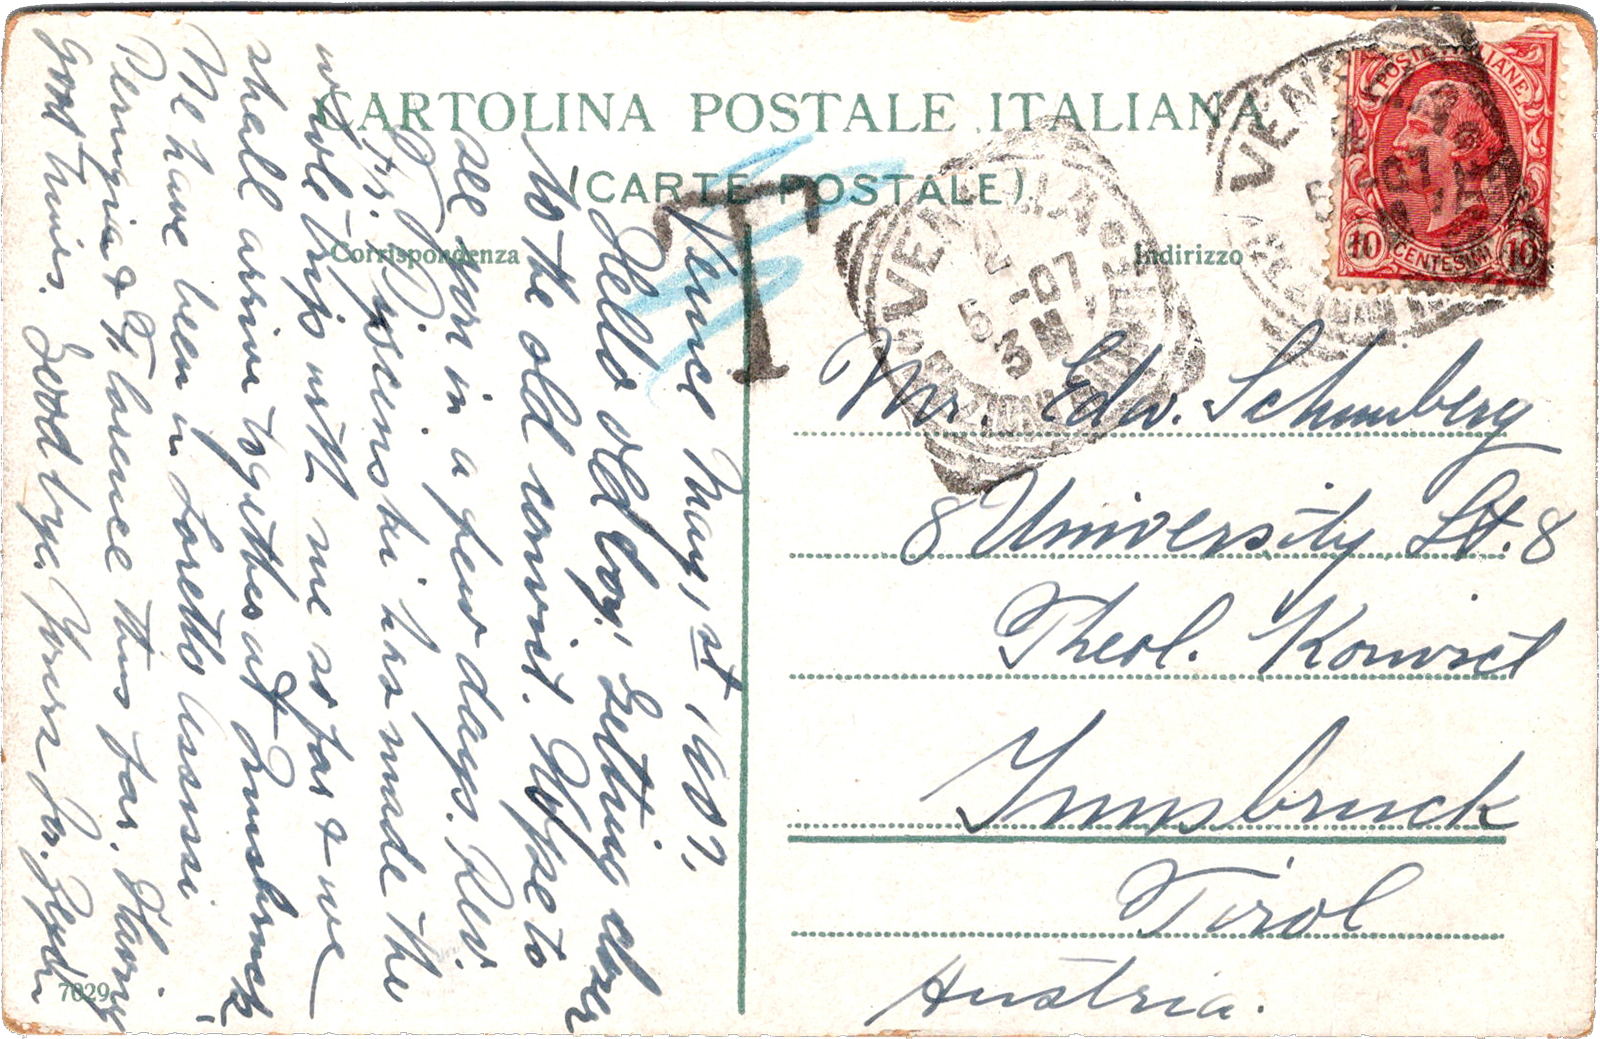 CARTOLINA POSTALE ITALIANA
(CARTE POSTALE)
Corrispondenza
Indirizzo
T
POSTE ITALIANE
10 CENTESIMI 10
VENEZIA
5 - 07
3 M
Mr. Edw. Schumberg
8 University St. 8
Theol. Konvict
Innsbruck
Tirol
Austria.
Venice May, 1st, 1907.
Hello old boy; Getting closer
to the old convict. Hope to
see you in a few days. Rev
Fr. has made the
whole trip with me so far & we
shall arrive together at Innsbruck
We have been in Loretto Assissi
Perrugia & Florence thus far. Having
good times. Good bye. Yours Jos.
7029